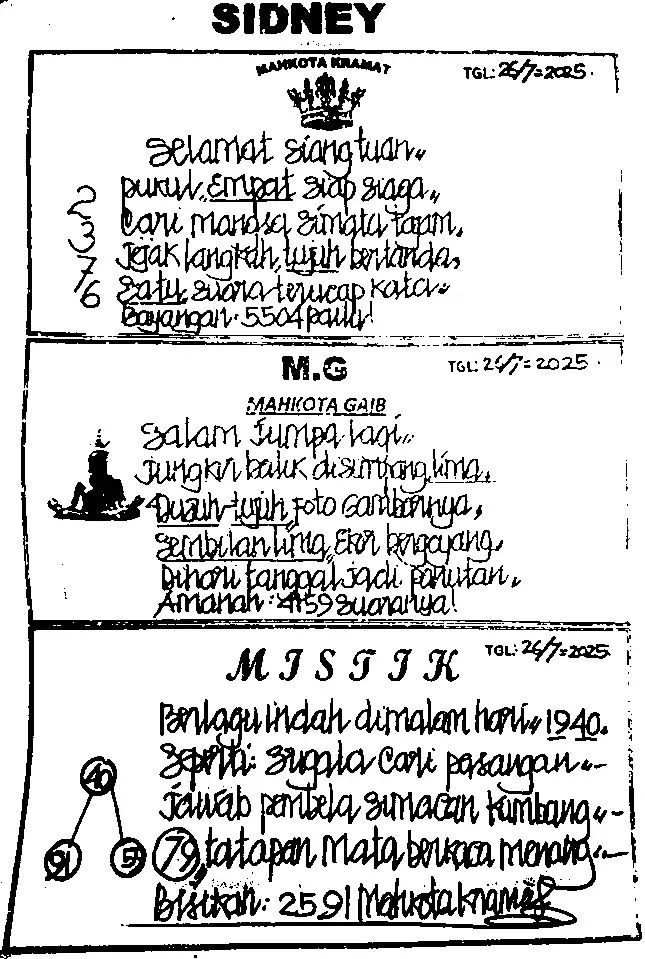 SIDNEY
MAHKOTA KRAMAT
TGL: 26/7=2025.
Selamat Siang tuan,,
pukul,, Empat siap siaga,,
2
Cari mangsa simata tajam,
3
Jejak langkah, tujuh bertanda,
7
Satu, suara terucap kata,,
6
Bayangan: 5504 paulu!
M.G
TGL: 26/7=2025.
MAHKOTA GAIB
Salam Jumpa lagi,,
Jungkir balik disumbang, lima,
tujuh, foto gambarnya,
Sembilan lima, Ekor bergoyang,
Dihari tanggal jadi panutan,
Amanah: 4159 suaranya!
MISTIK
TGL: 26/7=2025
Berlagu indah dimalam hari,, 1940.
Seperti: Sugala cari pasangan,,-
40
Jawab pembela simacan kumbang,,-
91
59
79, tatapan mata berkaca menang,,-
Bisikan: 2591 Mahkota kramat